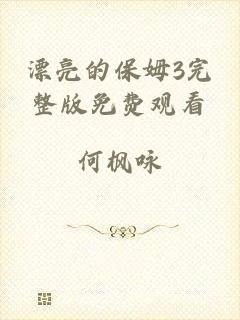 漂亮的保姆3完
整版免费观看
何枫咏